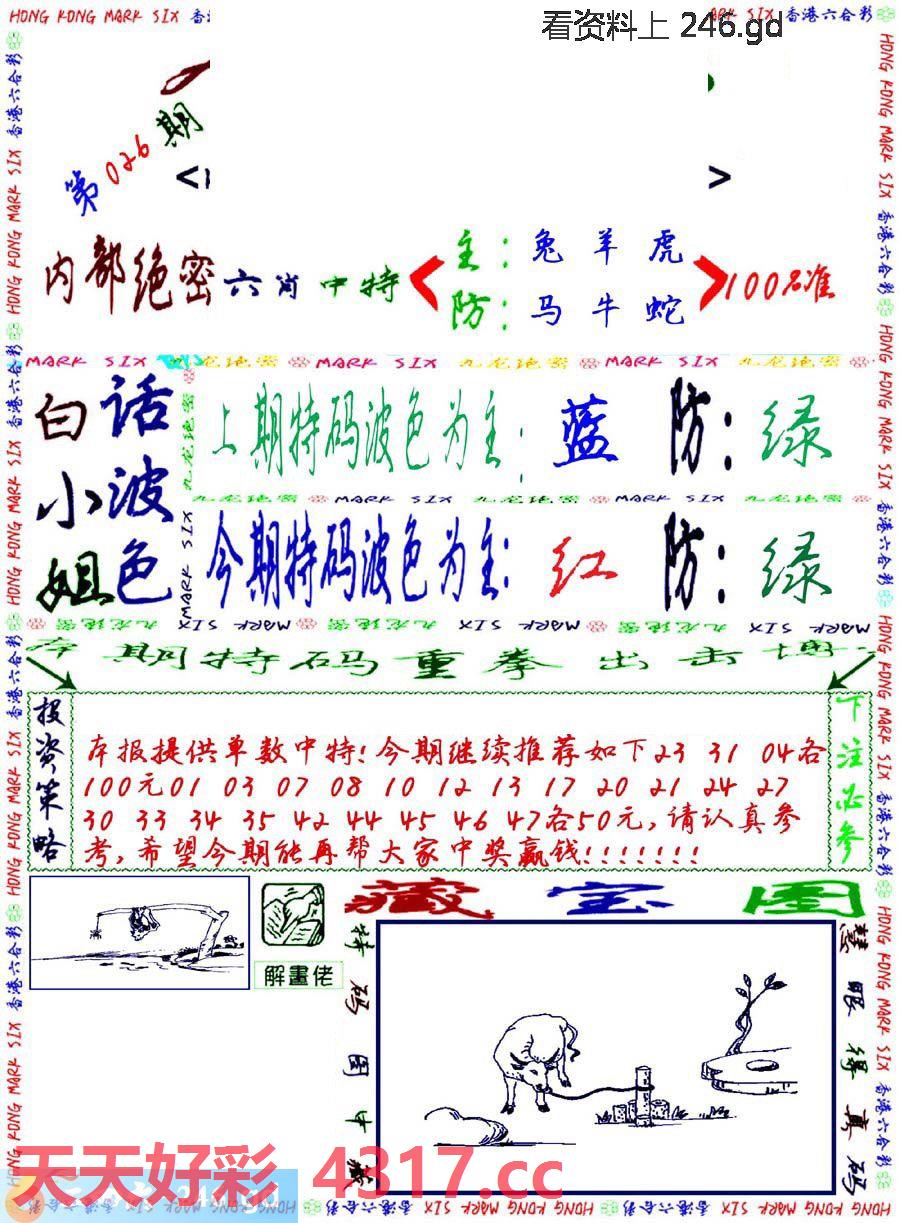 HONG KONG MARK SIX 香港六合彩
看资料上 246.gd
第026期
内部绝密六肖中特
主：兔羊虎
防：马牛蛇
100%准
MARK SIX 九龙绝密 MARK SIX 九龙绝密 MARK SIX 九龙绝密
白小姐
话波色
上期特码波色为主：蓝 防：绿
九龙绝密 MARK SIX 九龙绝密 MARK SIX 九龙绝密
今期特码波色为主：红 防：绿
本期特码重拳出击
投资策略
本报提供单数中特!今期继续推荐如下23 31 04各
100元01 03 07 08 10 12 13 17 20 21 24 27
30 33 34 35 42 44 45 46 47各50元,请认真参
考,希望今期能再帮大家中奖赢钱!!!!!!!
下注必参
藏宝图
解畫佬
特码图中
慧眼得真码
天天好彩 4317.cc